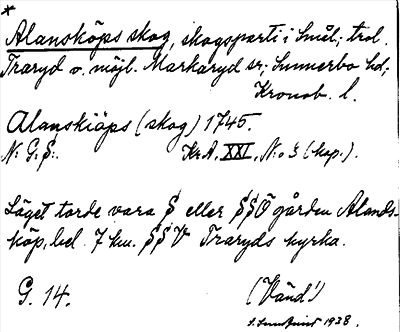 *
Alansköps skog, skogsparti i Smål; trol.
Traryd o. möjl. Markaryd sr; Sunnerbo hd;
Kronob. l.
Alanskiöps (skog) 1745.
N: G: S:.
Kr.A. XXI, N:o 3 (kop.).
Läget torde vara S eller SSÖ gården Alands-
köp, bel. 7 km. SSV Traryds kyrka.
G. 14.
(Vänd!)
1938.